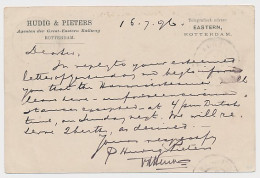 HUDIG & PIETERS
Agenten der Great-Eastern Railway
ROTTERDAM.
Telegraphisch adres:
EASTERN,
ROTTERDAM.
18.7.96.
Dear Sir,
In reply to your esteemed
letter of yesterday we beg to inform
you that the Harwich steamer will
leave here unforeseen circum-
stances excepted at 4 p.m. Dutch
time, on Sunday next. We will re-
serve 2 berths, as desired.
Yours respectfully
p Hudig & Pieters